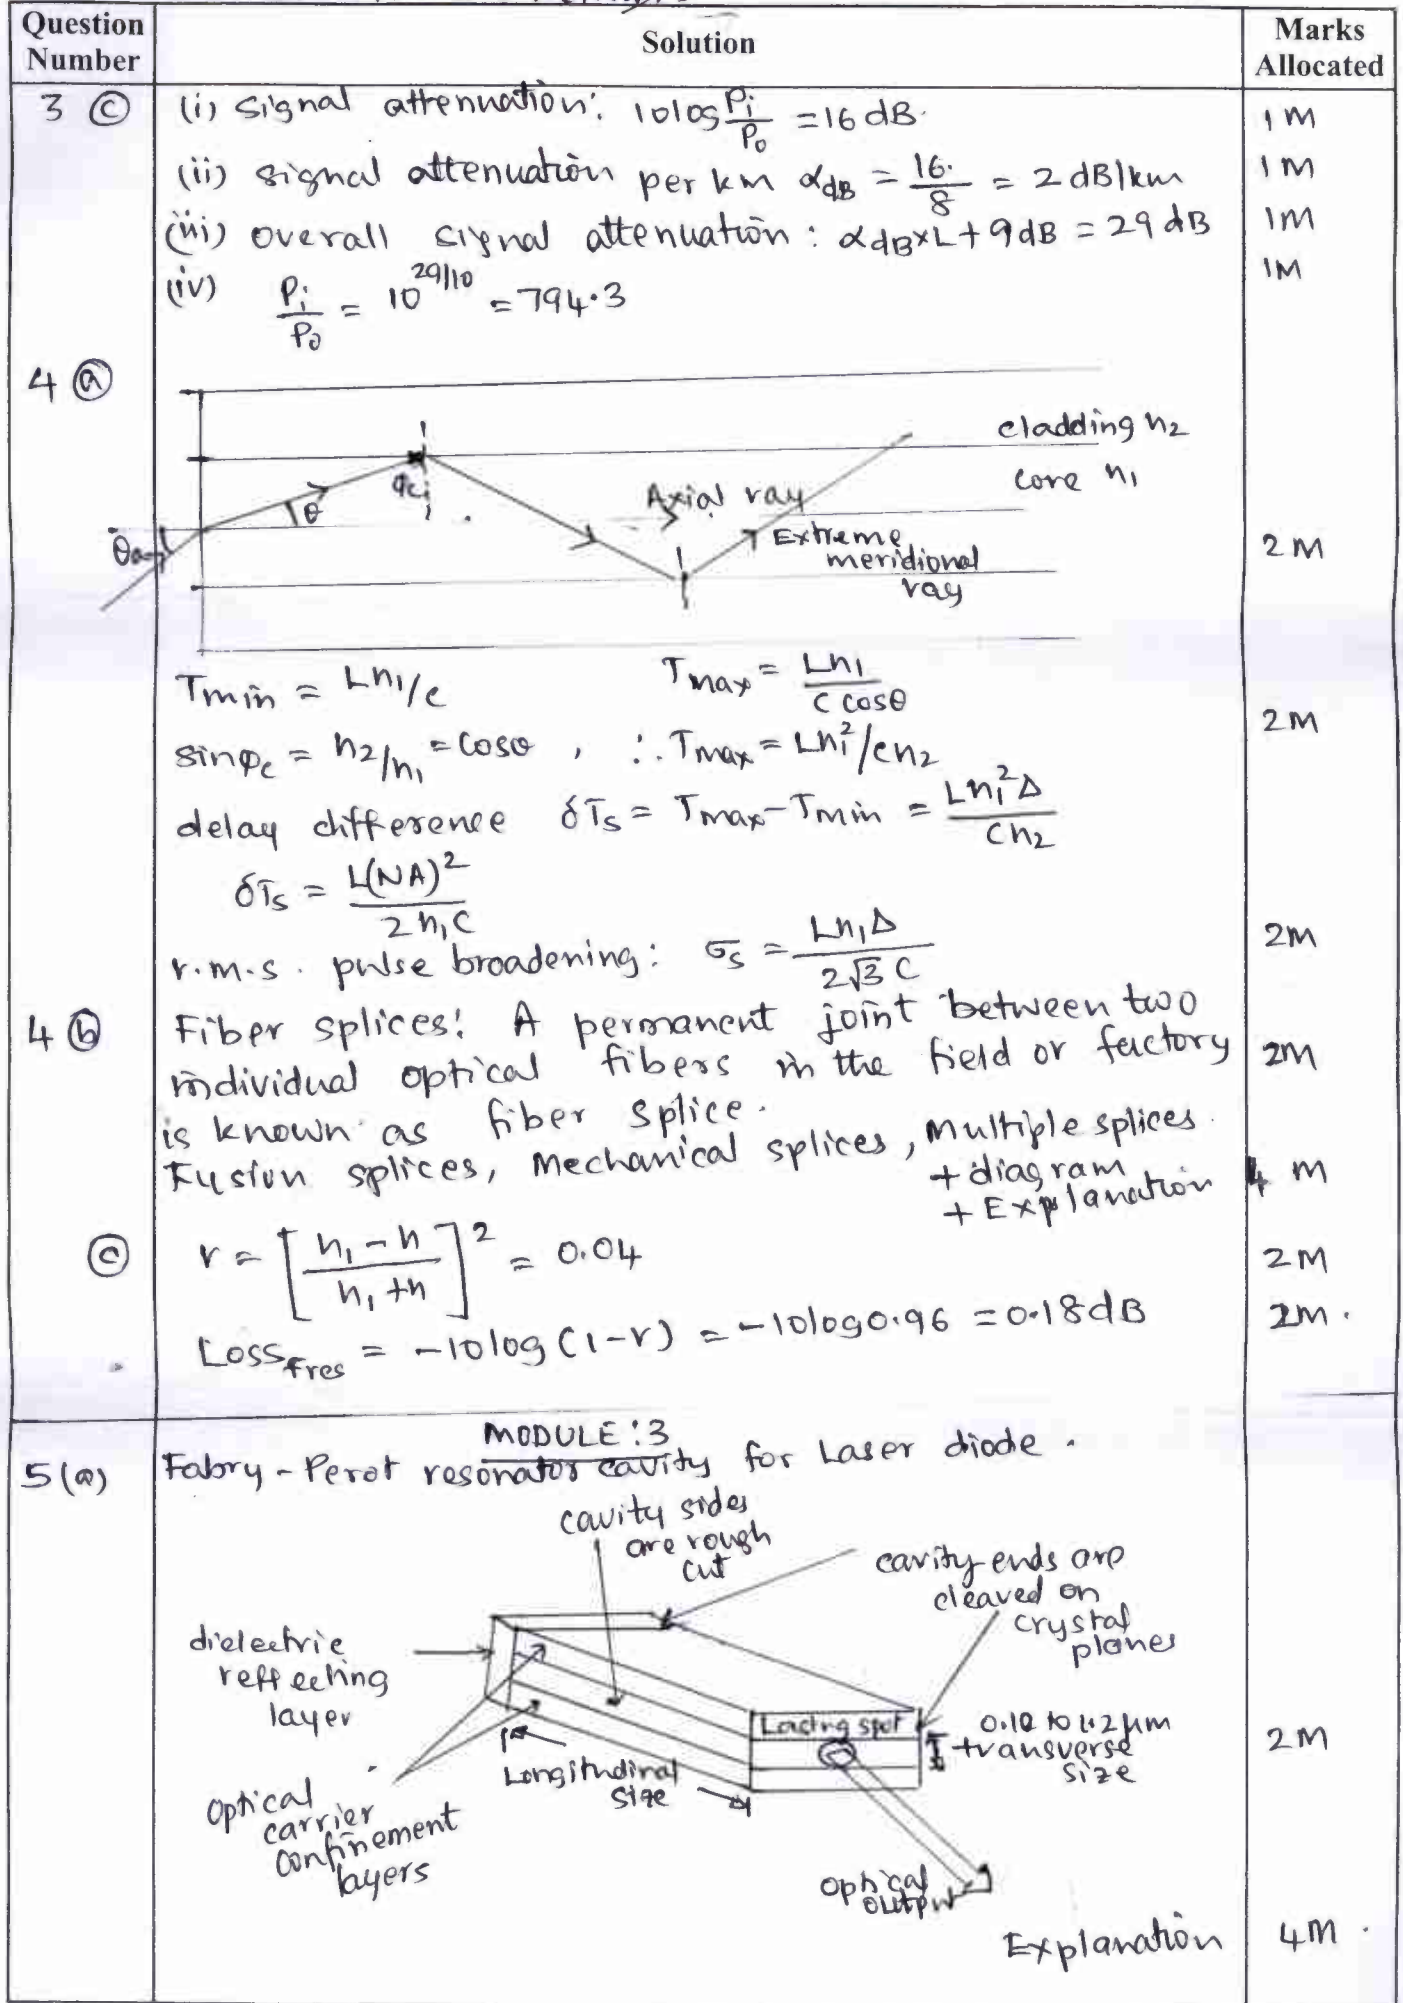 Question Number
Solution
Marks Allocated
3 (c)
(i) signal attenuation: 10log Pi/Po = 16 dB.
1M
(ii) signal attenuation per km αdB = 16/8 = 2 dB/km
1M
(iii) overall signal attenuation: αdB×L + 9dB = 29 dB
1M
(iv) Pi/Po = 10^29/10 = 794.3
1M
4 (a)
cladding n2
core n1
φc
θ
θa
Axial ray
Extreme meridional ray
2M
Tmin = Ln1/c
Tmax = Ln1/(c cosθ)
sinφc = n2/n1 = cosθ , ∴ Tmax = Ln1²/cn2
2M
delay difference δTs = Tmax-Tmin = Ln1²Δ/(cn2)
δTs = L(NA)²/(2n1c)
r.m.s. pulse broadening: σs = Ln1Δ/(2√3 C)
2M
4 (b)
Fiber splices: A permanent joint between two
individual optical fibers in the field or factory
2M
is known as fiber splice.
Fusion splices, Mechanical splices, Multiple splices
+ diagram
+ Explanation
4 M
(c)
r = [(n1-n)/(n1+n)]² = 0.04
2M
LossFres = -10log(1-r) = -10log0.96 = 0.18dB
2M.
MODULE:3
5(a)
Fabry-Perot resonator cavity for Laser diode.
cavity sides
are rough
cut
cavity ends are
cleaved on
crystal
planes
dielectric
reflecting
layer
spot
to 1.2 µm
transverse
size
2M
Longitudinal
size
Optical
carrier
confinement
layers
optical
output
Explanation
4M.